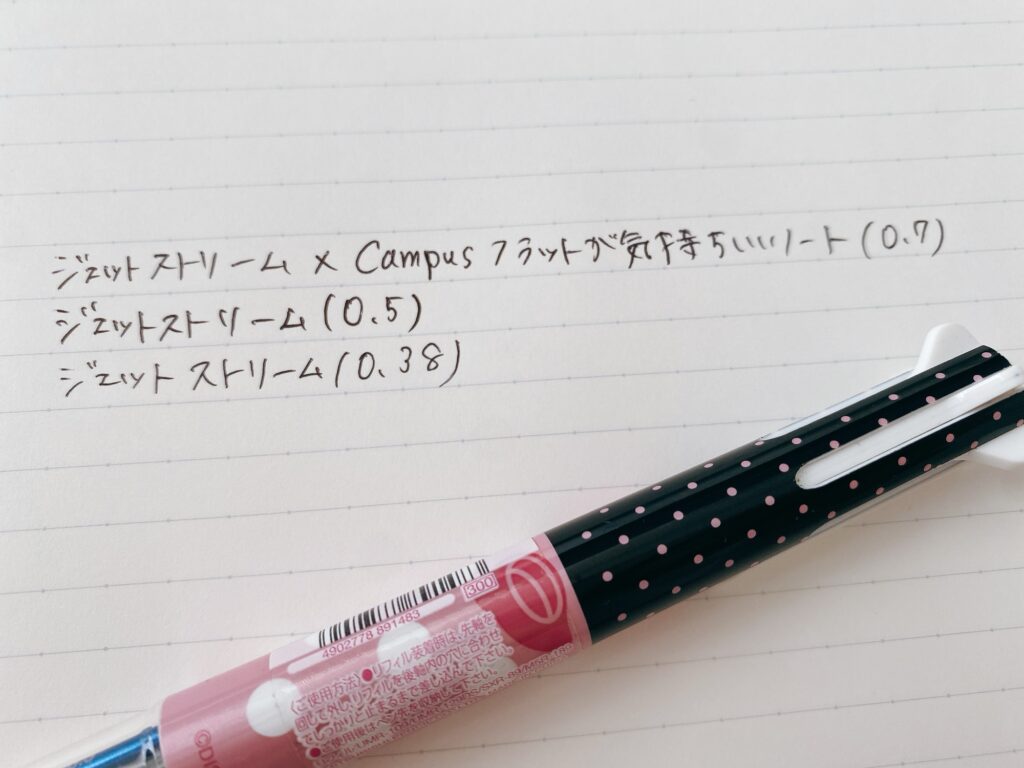 ジェットストリーム × Campus フラットが気持ちいいノート (0.7)
ジェットストリーム (0.5)
ジェットストリーム (0.38)
300
4902778 891483
〈ご使用方法〉●リフィル装着時は、先軸を
回して外し、リフィルを後軸内の穴に合わせ
しっかりと止まるまで差し込んで下さい。
©DIS